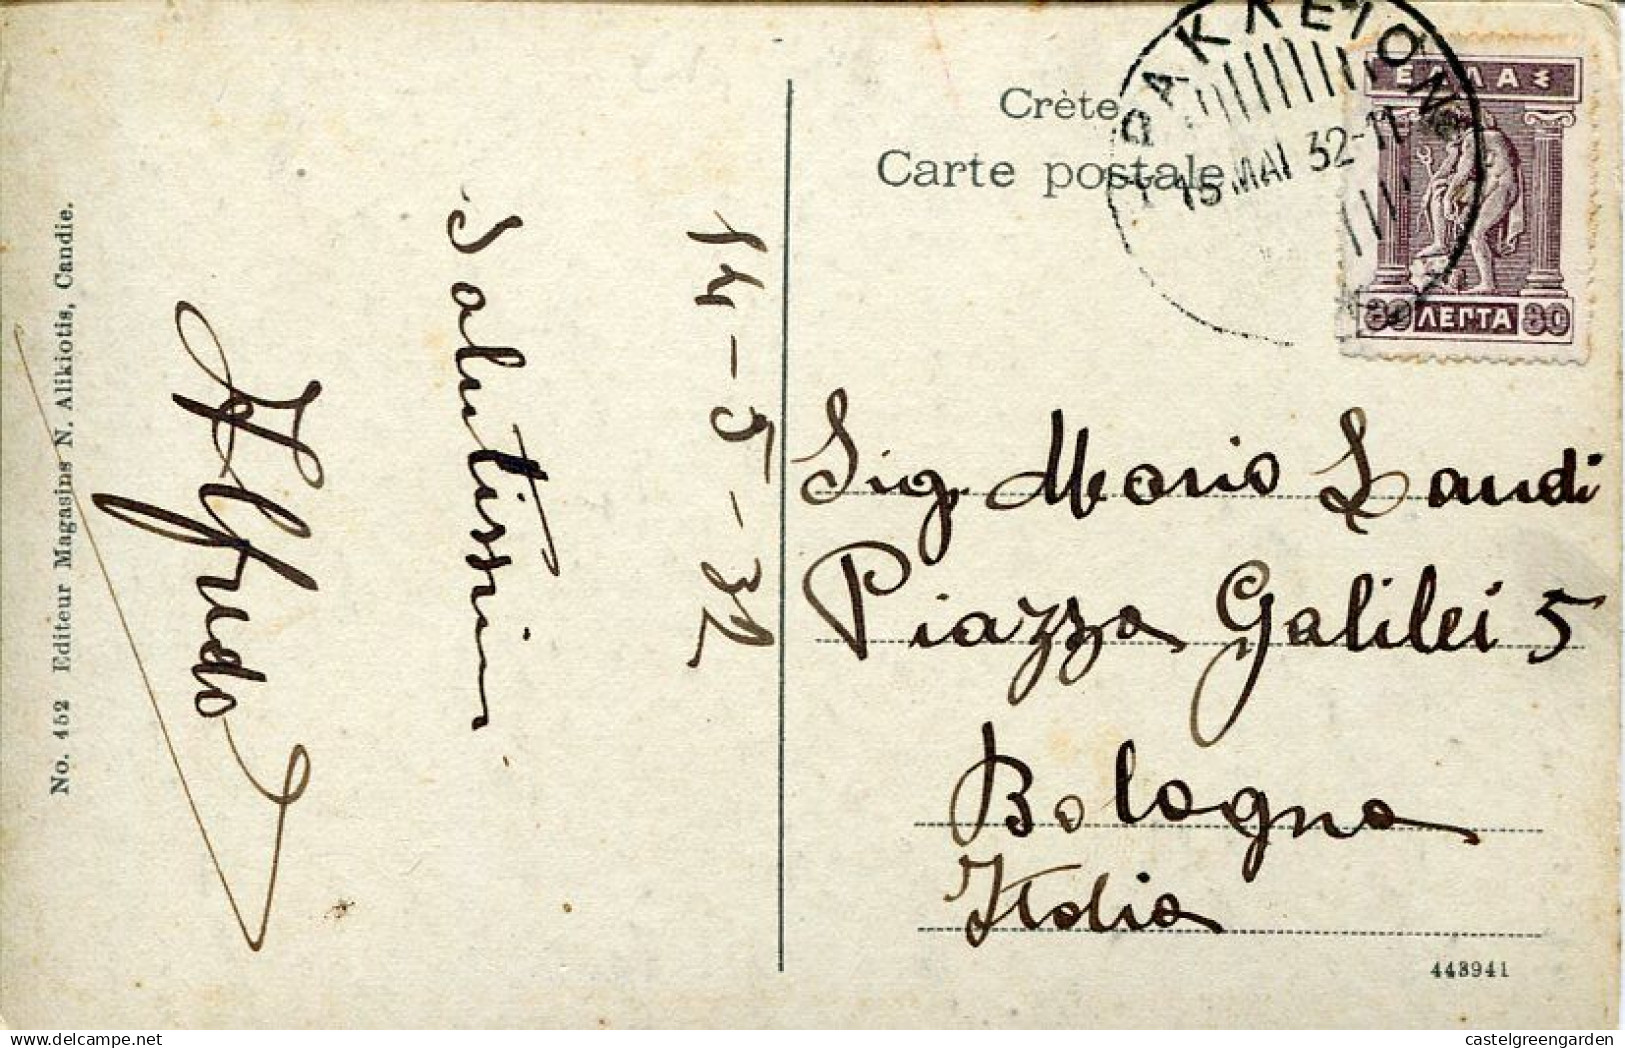 No. 452 Editeur Magasins N. Alikiotis, Candie.
14-5-32
Salutissimi
Alfredo
Crète
Carte postale
ΗΡΑΚΛΕΙΟΝ
15 ΜΑΙ 32-11
ΕΛΛΑΣ
80 ΛΕΠΤΑ 80
Sig. Mario Landi
Piazza Galilei 5
Bologna
Italia
443941
delcampe.net
castelgreengarden